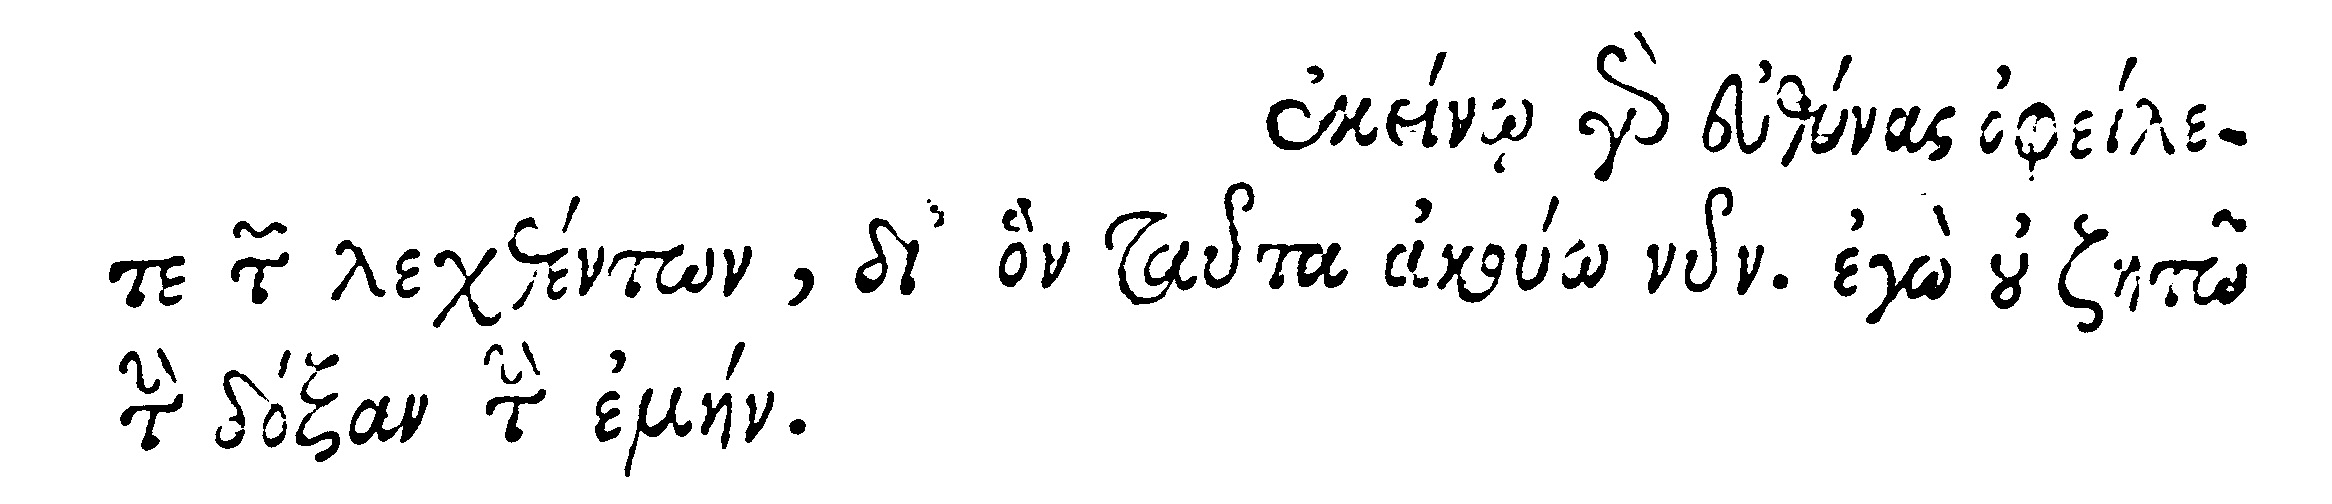 ἐκείνῳ γὰρ εὐθύνας ὀφείλε-
τε τῶν λεχθέντων, δι' ὃν ταῦτα ἀκούω νῦν. ἐγὼ οὐ ζητῶ
τὴν δόξαν τὴν ἐμήν.